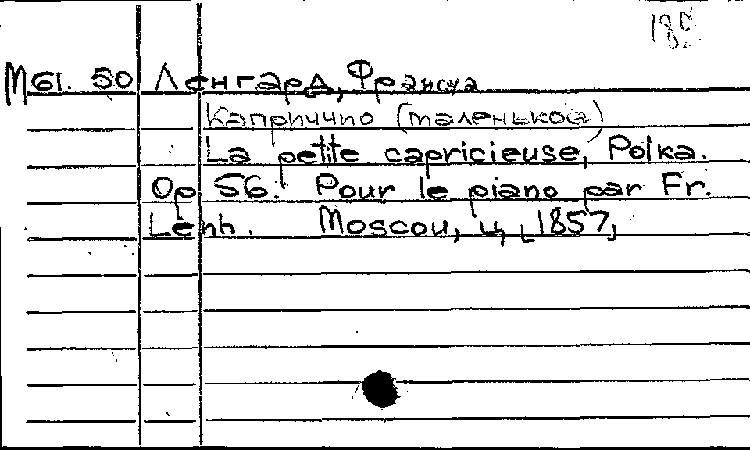 М61.50 Ленгард, Франсуа
Каприччио (маленькое)
La petite capricieuse, Polka.
Op 56. Pour le piano par Fr.
Lenh. Moscou, ц, [1857]